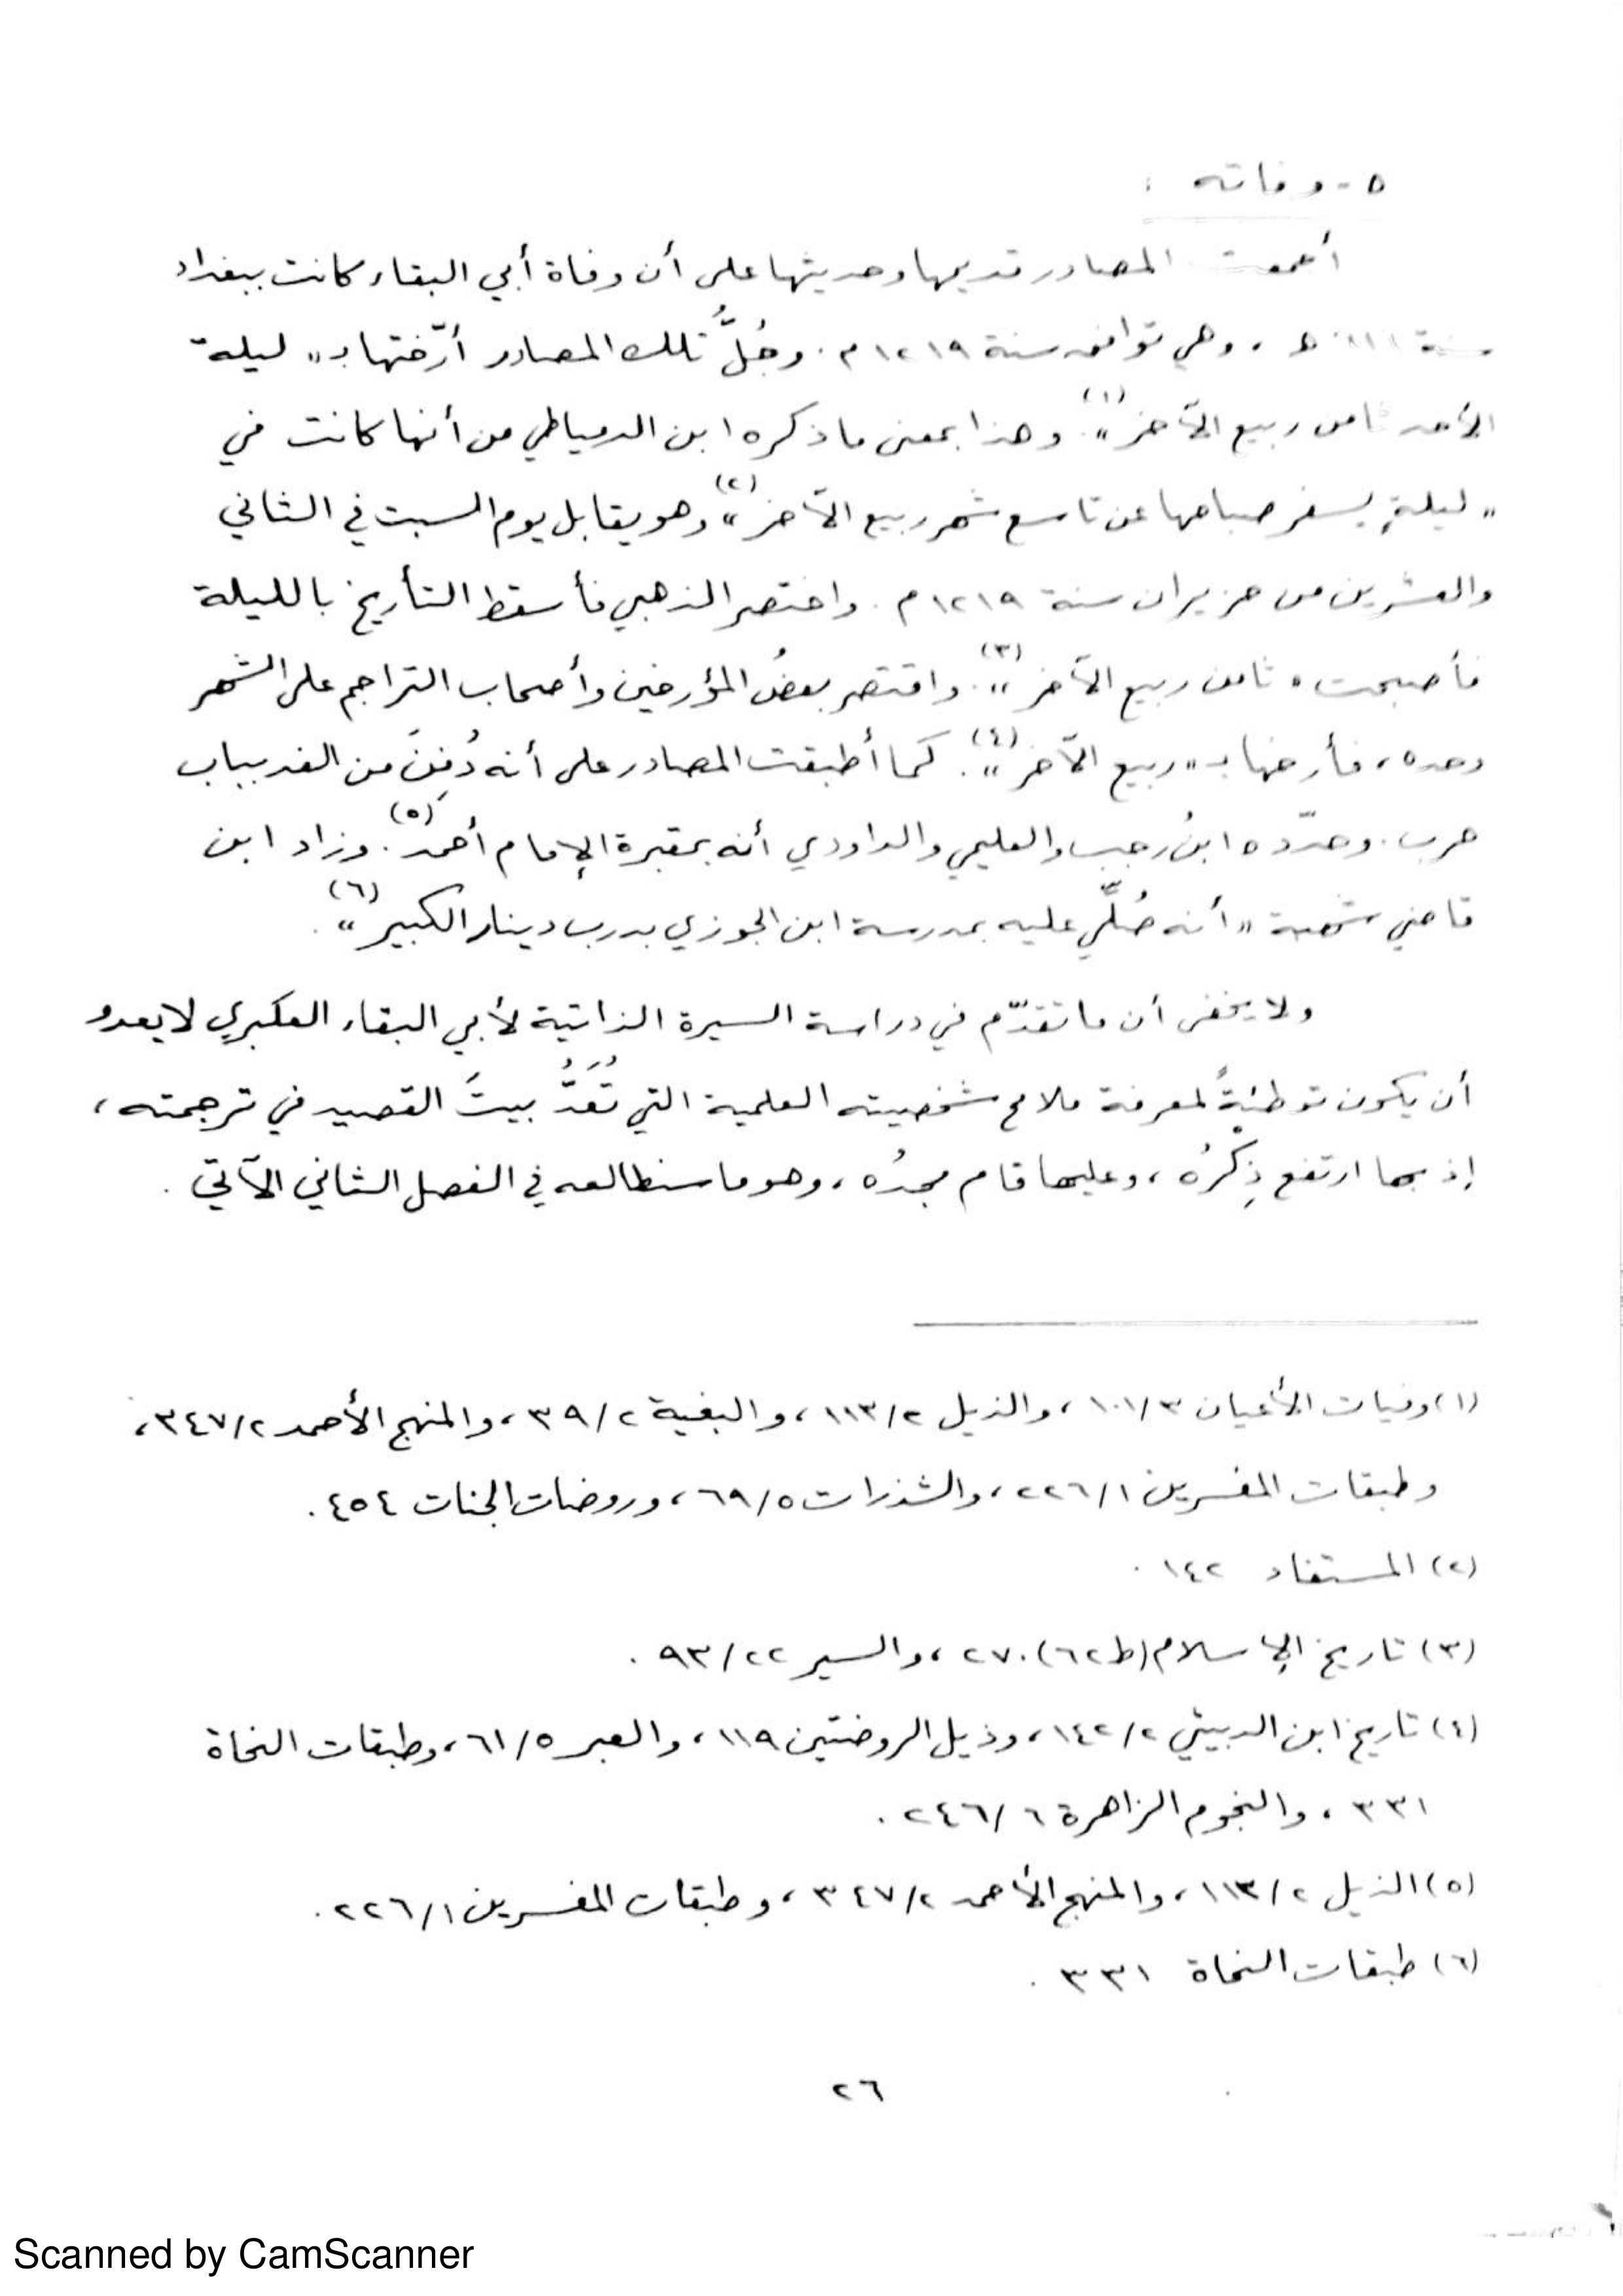 ٥ - وفاته :
أجمعت المصادر قديمها وحديثها على أن وفاة أبي البقاء كانت ببغداد
سنة هـ ، وهي توافق سنة ١٢١٩م . وجُلُّ تلك المصادر أرّختها بـ " ليلة
الأحد ثامن ربيع الآخر "(١). وهذا بمعنى ما ذكره ابن الدمياطي من أنها كانت في
" ليلةٍ يسفر صباحها عن تاسع شهر ربيع الآخر "(٢) وهو يقابل يوم السبت في الثاني
والعشرين من حزيران سنة ١٢١٩م . واختصر الذهبي فأسقط التأريخ بالليلة
فأصبحت " ثامن ربيع الآخر "(٣). واقتصر بعضُ المؤرخين وأصحاب التراجم على الشهر
وحده ، فأرخها بـ " ربيع الآخر "(٤). كما أطبقت المصادر على أنه دُفِنَ من الغد بباب
حرب . وحدّده ابنُ رجب والعليمي والداودي أنه بمقبرة الإمام أحمد(٥). وزاد ابن
قاضي شهبة " أنه صُلِّي عليه بمدرسة ابن الجوزي بدرب دينار الكبير "(٦) .
ولا يخفى أن ما تقدّم في دراسة السيرة الذاتية لأبي البقاء العكبري لا يعدو
أن يكون توطئةً لمعرفة ملامح شخصيته العلمية التي تُعَدُّ بيتَ القصيد في ترجمته ،
إذ بها ارتفع ذِكْرُه ، وعليها قام مجدُه ، وهو ما سنطالعه في الفصل الثاني الآتي .
(١) وفيات الأعيان ٣/١٠١ ، والذيل ٢/١١٣ ، والبغية ٢/٣٩ ، والمنهج الأحمد ٢/٣٤٧ ،
وطبقات المفسرين ١/٢٢٦ ، والشذرات ٥/٦٩ ، وروضات الجنات ٤٥٤ .
(٢) المستفاد ١٤٢ .
(٣) تاريخ الإسلام (ط٦٢) ٢٧٠ ، والسير ٢٢/٩٣ .
(٤) تاريخ ابن الدبيثي ٢/١٤٢ ، وذيل الروضتين ١١٩ ، والعبر ٥/٦١ ، وطبقات النحاة
٣٣١ ، والنجوم الزاهرة ٦/٢٤٦ .
(٥) الذيل ٢/١١٣ ، والمنهج الأحمد ٢/٣٤٧ ، وطبقات المفسرين ١/٢٢٦ .
(٦) طبقات النحاة ٣٣١ .
٢٦
Scanned by CamScanner